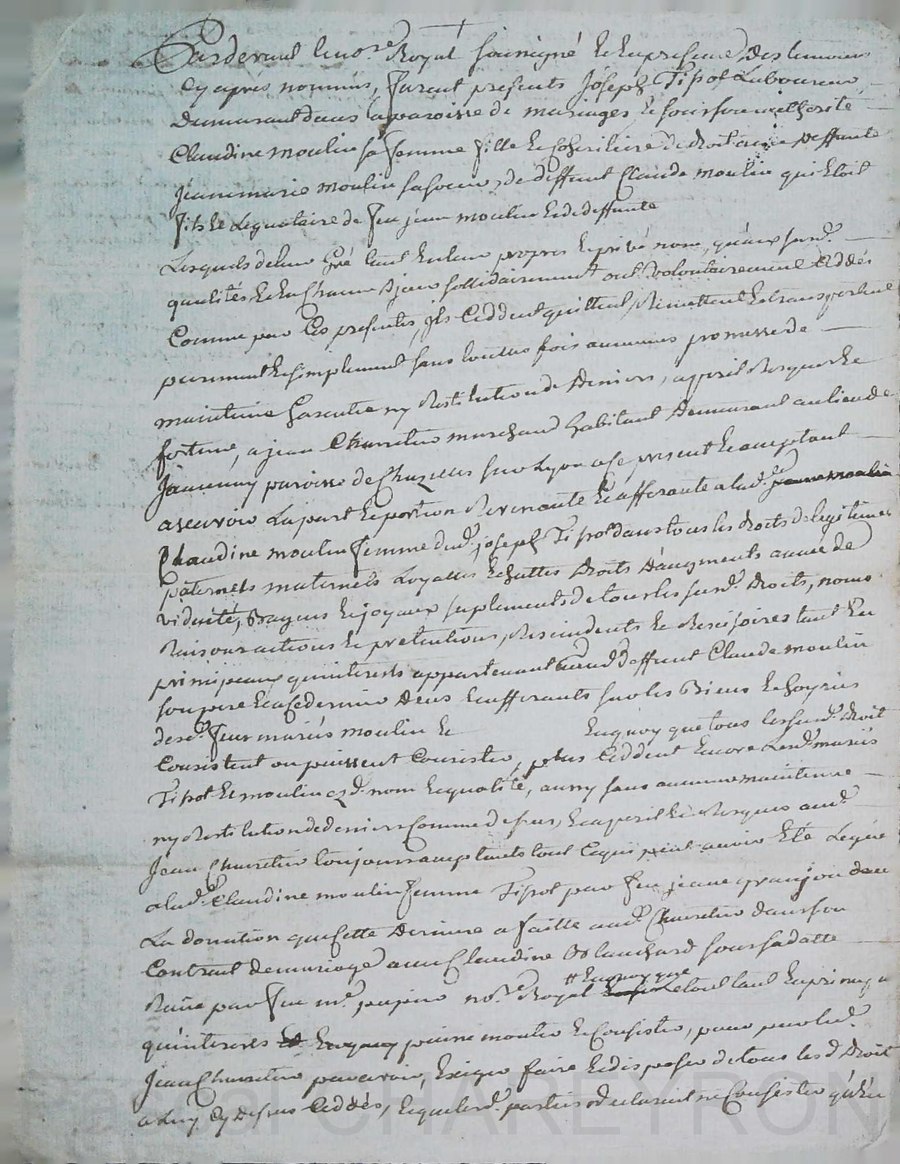 Pardevant le no.re Royal soussigné et en presence des temoins
cy après nommés, furent presents Joseph Tipot Laboureur
demeurant dans la paroisse de maringes et sous son authorité
Claudine moulin sa femme fille et coheritiere de droit avec deffunte
Jeanne marie moulin sa soeur, de deffunt Claude moulin qui etoit
fils et Legataire de feu jean moulin et de deffunte
Lesquels de leur gré tant en leur propre et privé nom, qu'aux susd.
qualités et en chacun d'jeux sollidairement ont volontairement ceddés
comme par ces presentes, ils ceddent quittent, Remettent et transportent
purement et simplement sans toutes fois aucunes promesse de
maintenue garentie ny Restitution de deniers, a peril Risque et
fortune, a jean Charretier marchand habitant demeurant au lieu de
paroisse de Chazelles sur Lyon a ce present et acceptant
ascavoir La part et portion Revenante et afferante a lad. jeanne moulin
Claudine moulin femme dud. joseph Tipot dans tous les droits de legitimes
paternels maternels Loyalles et fattes droits d'augments année de
viduité, Bagues et joyaux suplements de tous les susd. Droits, noms
Raisons actions et pretentions, Rescindents et Rescisoires tant en
principaux qu'interests appartenant aud. deffunt Claude moulin
son pere et a ce dernier deus et afferants sur les Biens et hoyries
desd. feus mariés moulin et Enquoy que tous lesusd. Droit
consistent ou puissent consister, plus ceddent encore Lesd. mariés
Tipot et moulin esd. nom et qualité, aussy sans aucune maintenue
ny Restitution de deniers comme dessus, et a peril et Risques aud.
Jean Charretier toujours acceptant tout ce qui peut avoir été Legué
a lad. Claudine moulin femme Tipot par feu jeane granjon dans
La donation que cette derniere a faitte aud. Charretier dans son
Contract de mariage avec Claudine Blanchard sous sa datte
Reçu par feu m.e pupier no.re Royal # Enquoy que le tout tant en principaux
qu'interests puisse monter et consister, pour par led.
Jean Charretier percevoir, Exiger faire et disposer de tous les d. Droit
a Luy cy dessus ceddés, Lesquels d. parties declarent ne consister qu'en
Pascal CHAREYRON